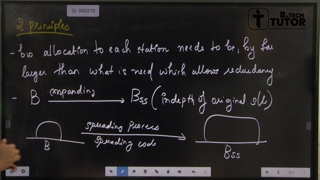 B.TECH
TUTOR
2 principles
- B.W allocation to each station needs to be, by far
larger than what is need which allows redundancy
- B expanding Bss (indepth of original s/l)
spreading process
spreading code
B
Bss